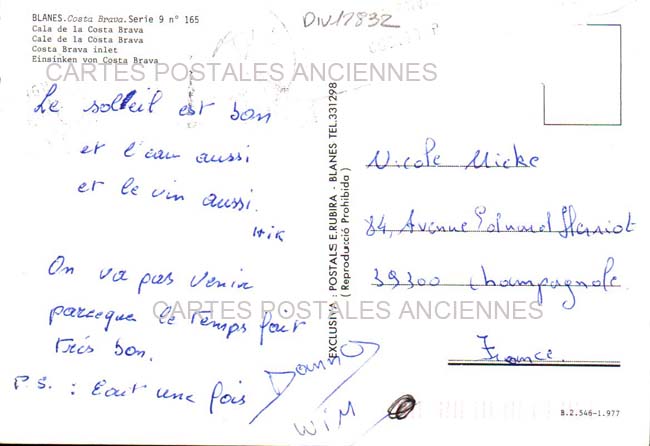 BLANES. Costa Brava. Serie 9 n° 165
Cala de la Costa Brava
Cale de la Costa Brava
Costa Brava inlet
Einsinken von Costa Brava
DIV17832
CARTES POSTALES ANCIENNES
Le soleil est bon
et l'eau aussi
et le vin aussi.
Hik
On va pas venir
parceque le temps fait
très bon.
P.S. : Ecrit une fois
Wim
EXCLUSIVA: POSTALS E.RUBIRA - BLANES TEL.331298
( Reproducció Prohibida )
Nicole Micke
84, Avenue Edouard Herriot
39300 Champagnole
CARTES POSTALES ANCIENNES
France.
B.2.546-1.977